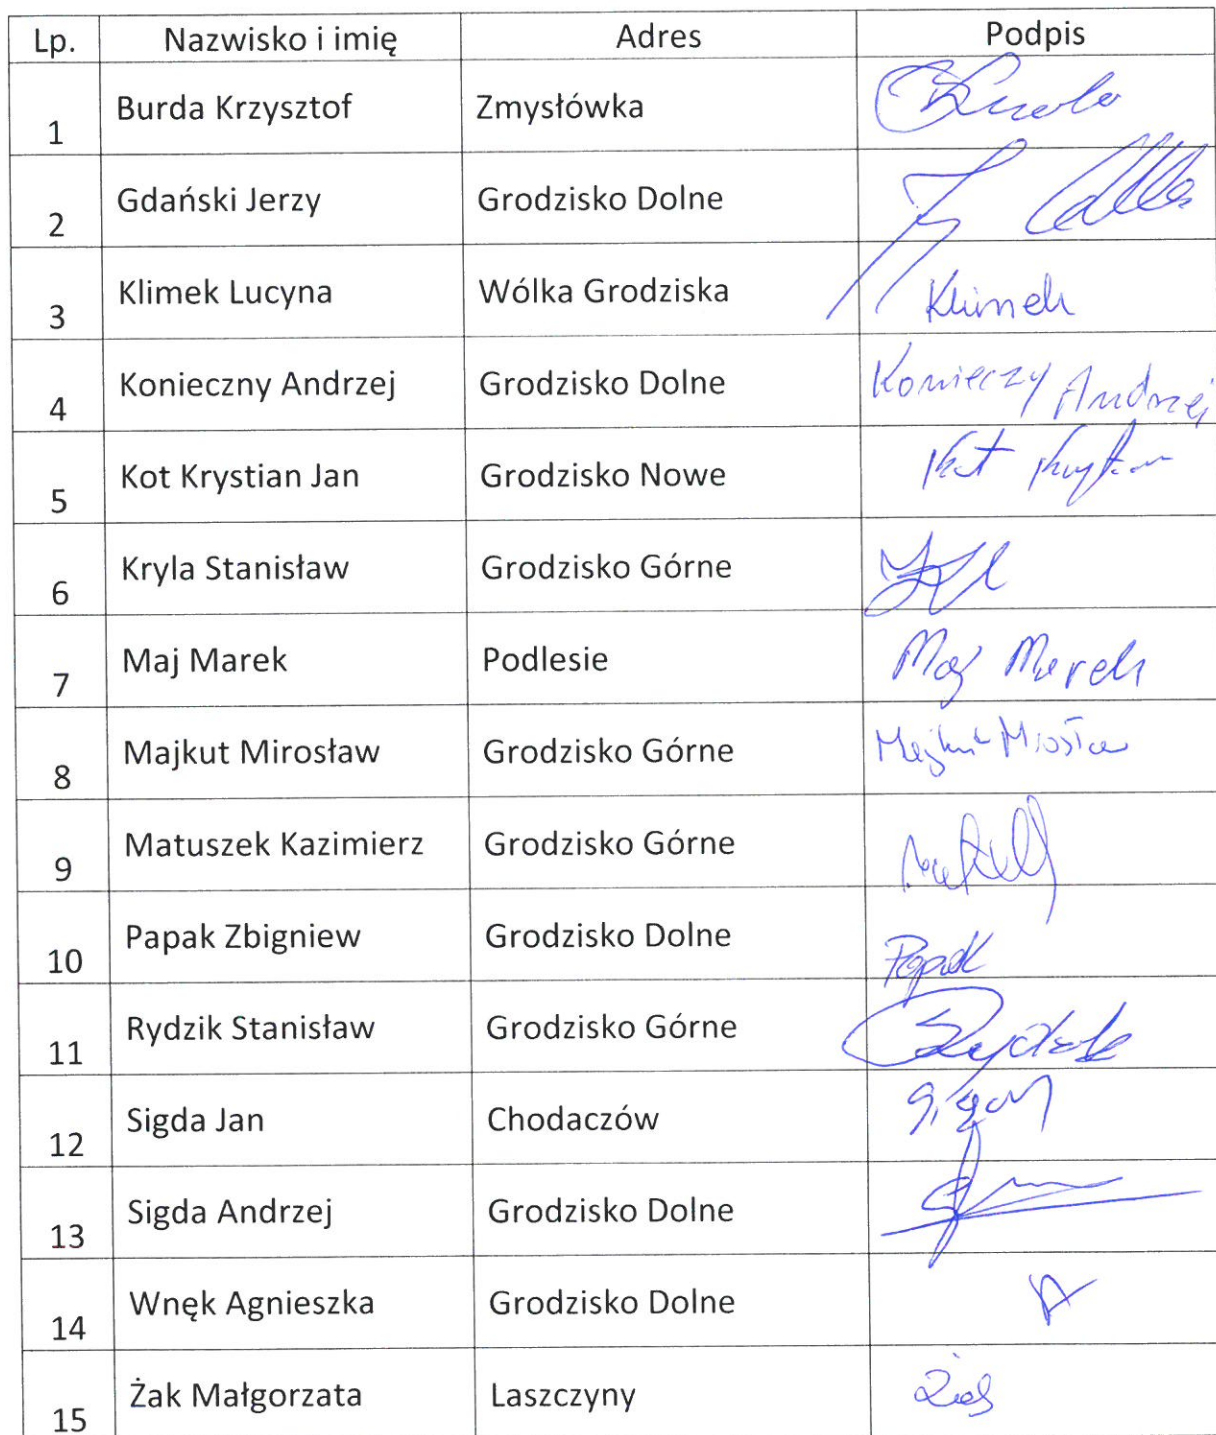 Lp. Nazwisko i imię Adres Podpis
1 Burda Krzysztof Zmysłówka
2 Gdański Jerzy Grodzisko Dolne
3 Klimek Lucyna Wólka Grodziska Klimek
4 Konieczny Andrzej Grodzisko Dolne Konieczy Andrzej
5 Kot Krystian Jan Grodzisko Nowe Kot
6 Kryla Stanisław Grodzisko Górne
7 Maj Marek Podlesie Maj Marek
8 Majkut Mirosław Grodzisko Górne Majkut
9 Matuszek Kazimierz Grodzisko Górne
10 Papak Zbigniew Grodzisko Dolne Papak
11 Rydzik Stanisław Grodzisko Górne
12 Sigda Jan Chodaczów
13 Sigda Andrzej Grodzisko Dolne
14 Wnęk Agnieszka Grodzisko Dolne
15 Żak Małgorzata Laszczyny Żak